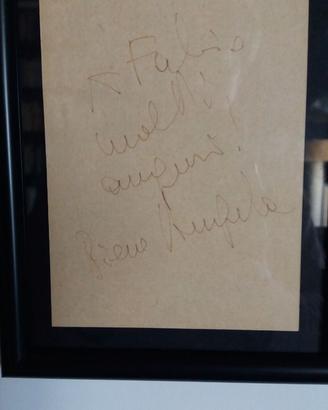 A Fabio
molti
auguri!
Piero Angela